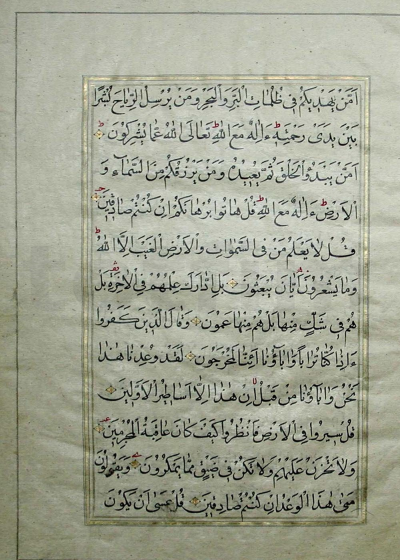 أمّن يهديكم في ظلمات البرّ والبحر ومن يرسل الرّياح بشرا
بين يدى رحمته ءاله مع الله تعالى الله عمّا يشركون
امّن يبدؤ الخلق ثمّ يعيده ومن يرزقكم من السّماء و
الارض ءاله مع الله قل هاتوا برهانكم ان كنتم صادقين
قل لا يعلم من في السّموات والارض الغيب الّا الله
وما يشعرون ايّان يبعثون بل ادّارك علمهم في الآخرة بل
هم في شكّ منها بل هم منها عمون وقال الّذين كفروا
ءاذا كنّا ترابا وآباؤنا ائنّا لمخرجون لقد وعدنا هذا
نحن وآباؤنا من قبل ان هذا الّا اساطير الاوّلين
قل سيروا في الارض فانظروا كيف كان عاقبة المجرمين
ولا تحزن عليهم ولا تكن في ضيق ممّا يمكرون ويقولون
متى هذا الوعد ان كنتم صادقين قل عسى ان يكون